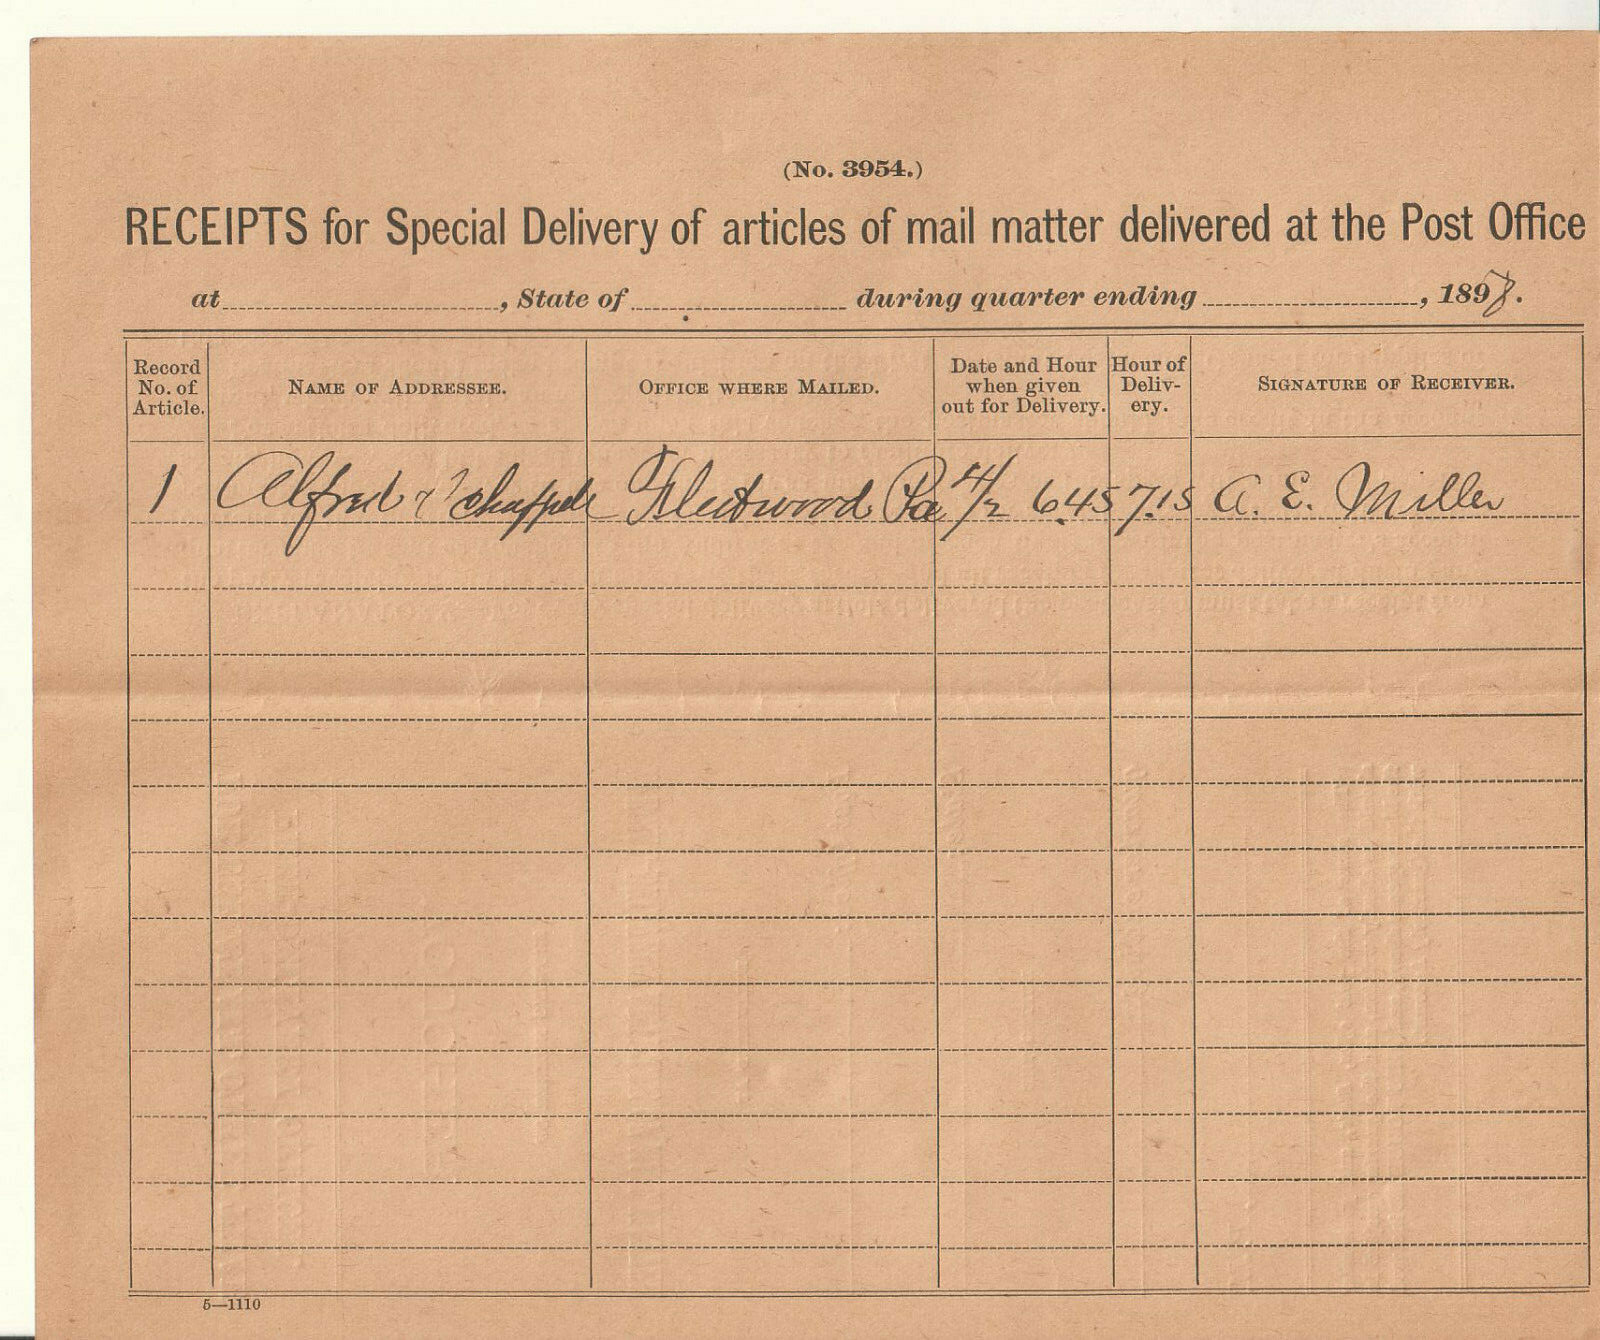 (No. 3954.)
RECEIPTS for Special Delivery of articles of mail matter delivered at the Post Office
at , State of during quarter ending , 1898.
Record No. of Article.
NAME OF ADDRESSEE.
OFFICE WHERE MAILED.
Date and Hour when given out for Delivery.
Hour of Deliv-ery.
SIGNATURE OF RECEIVER.
1 Alfred Fleetwood Pa 4/2 6.45 7.15 A. E. Miller
5—1110